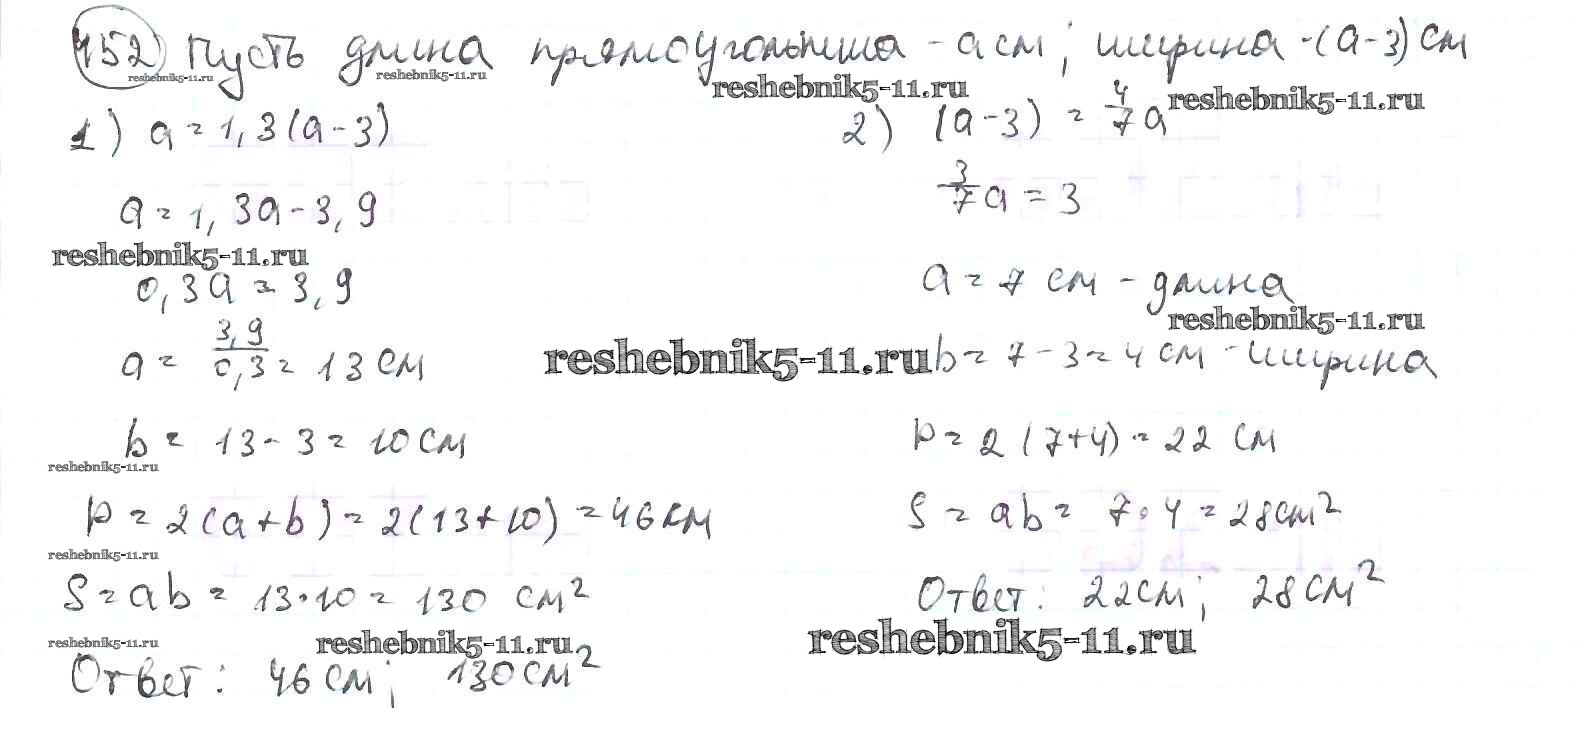 452) Пусть длина прямоугольника - а см; ширина - (а-3) см
reshebnik5-11.ru reshebnik5-11.ru reshebnik5-11.ru reshebnik5-11.ru
1) a = 1,3(a-3)
a = 1,3a - 3,9
reshebnik5-11.ru
0,3a = 3,9
a = 3,9/0,3 = 13 см
b = 13 - 3 = 10 см
reshebnik5-11.ru
p = 2(a+b) = 2(13+10) = 46 см
reshebnik5-11.ru
S = ab = 13·10 = 130 см²
reshebnik5-11.ru reshebnik5-11.ru
Ответ: 46 см; 130 см²
2) (a-3) = 4/7 a
3/7 a = 3
a = 7 см - длина
reshebnik5-11.ru
reshebnik5-11.ru
b = 7 - 3 = 4 см - ширина
p = 2(7+4) = 22 см
S = ab = 7·4 = 28 см²
Ответ: 22 см; 28 см²
reshebnik5-11.ru